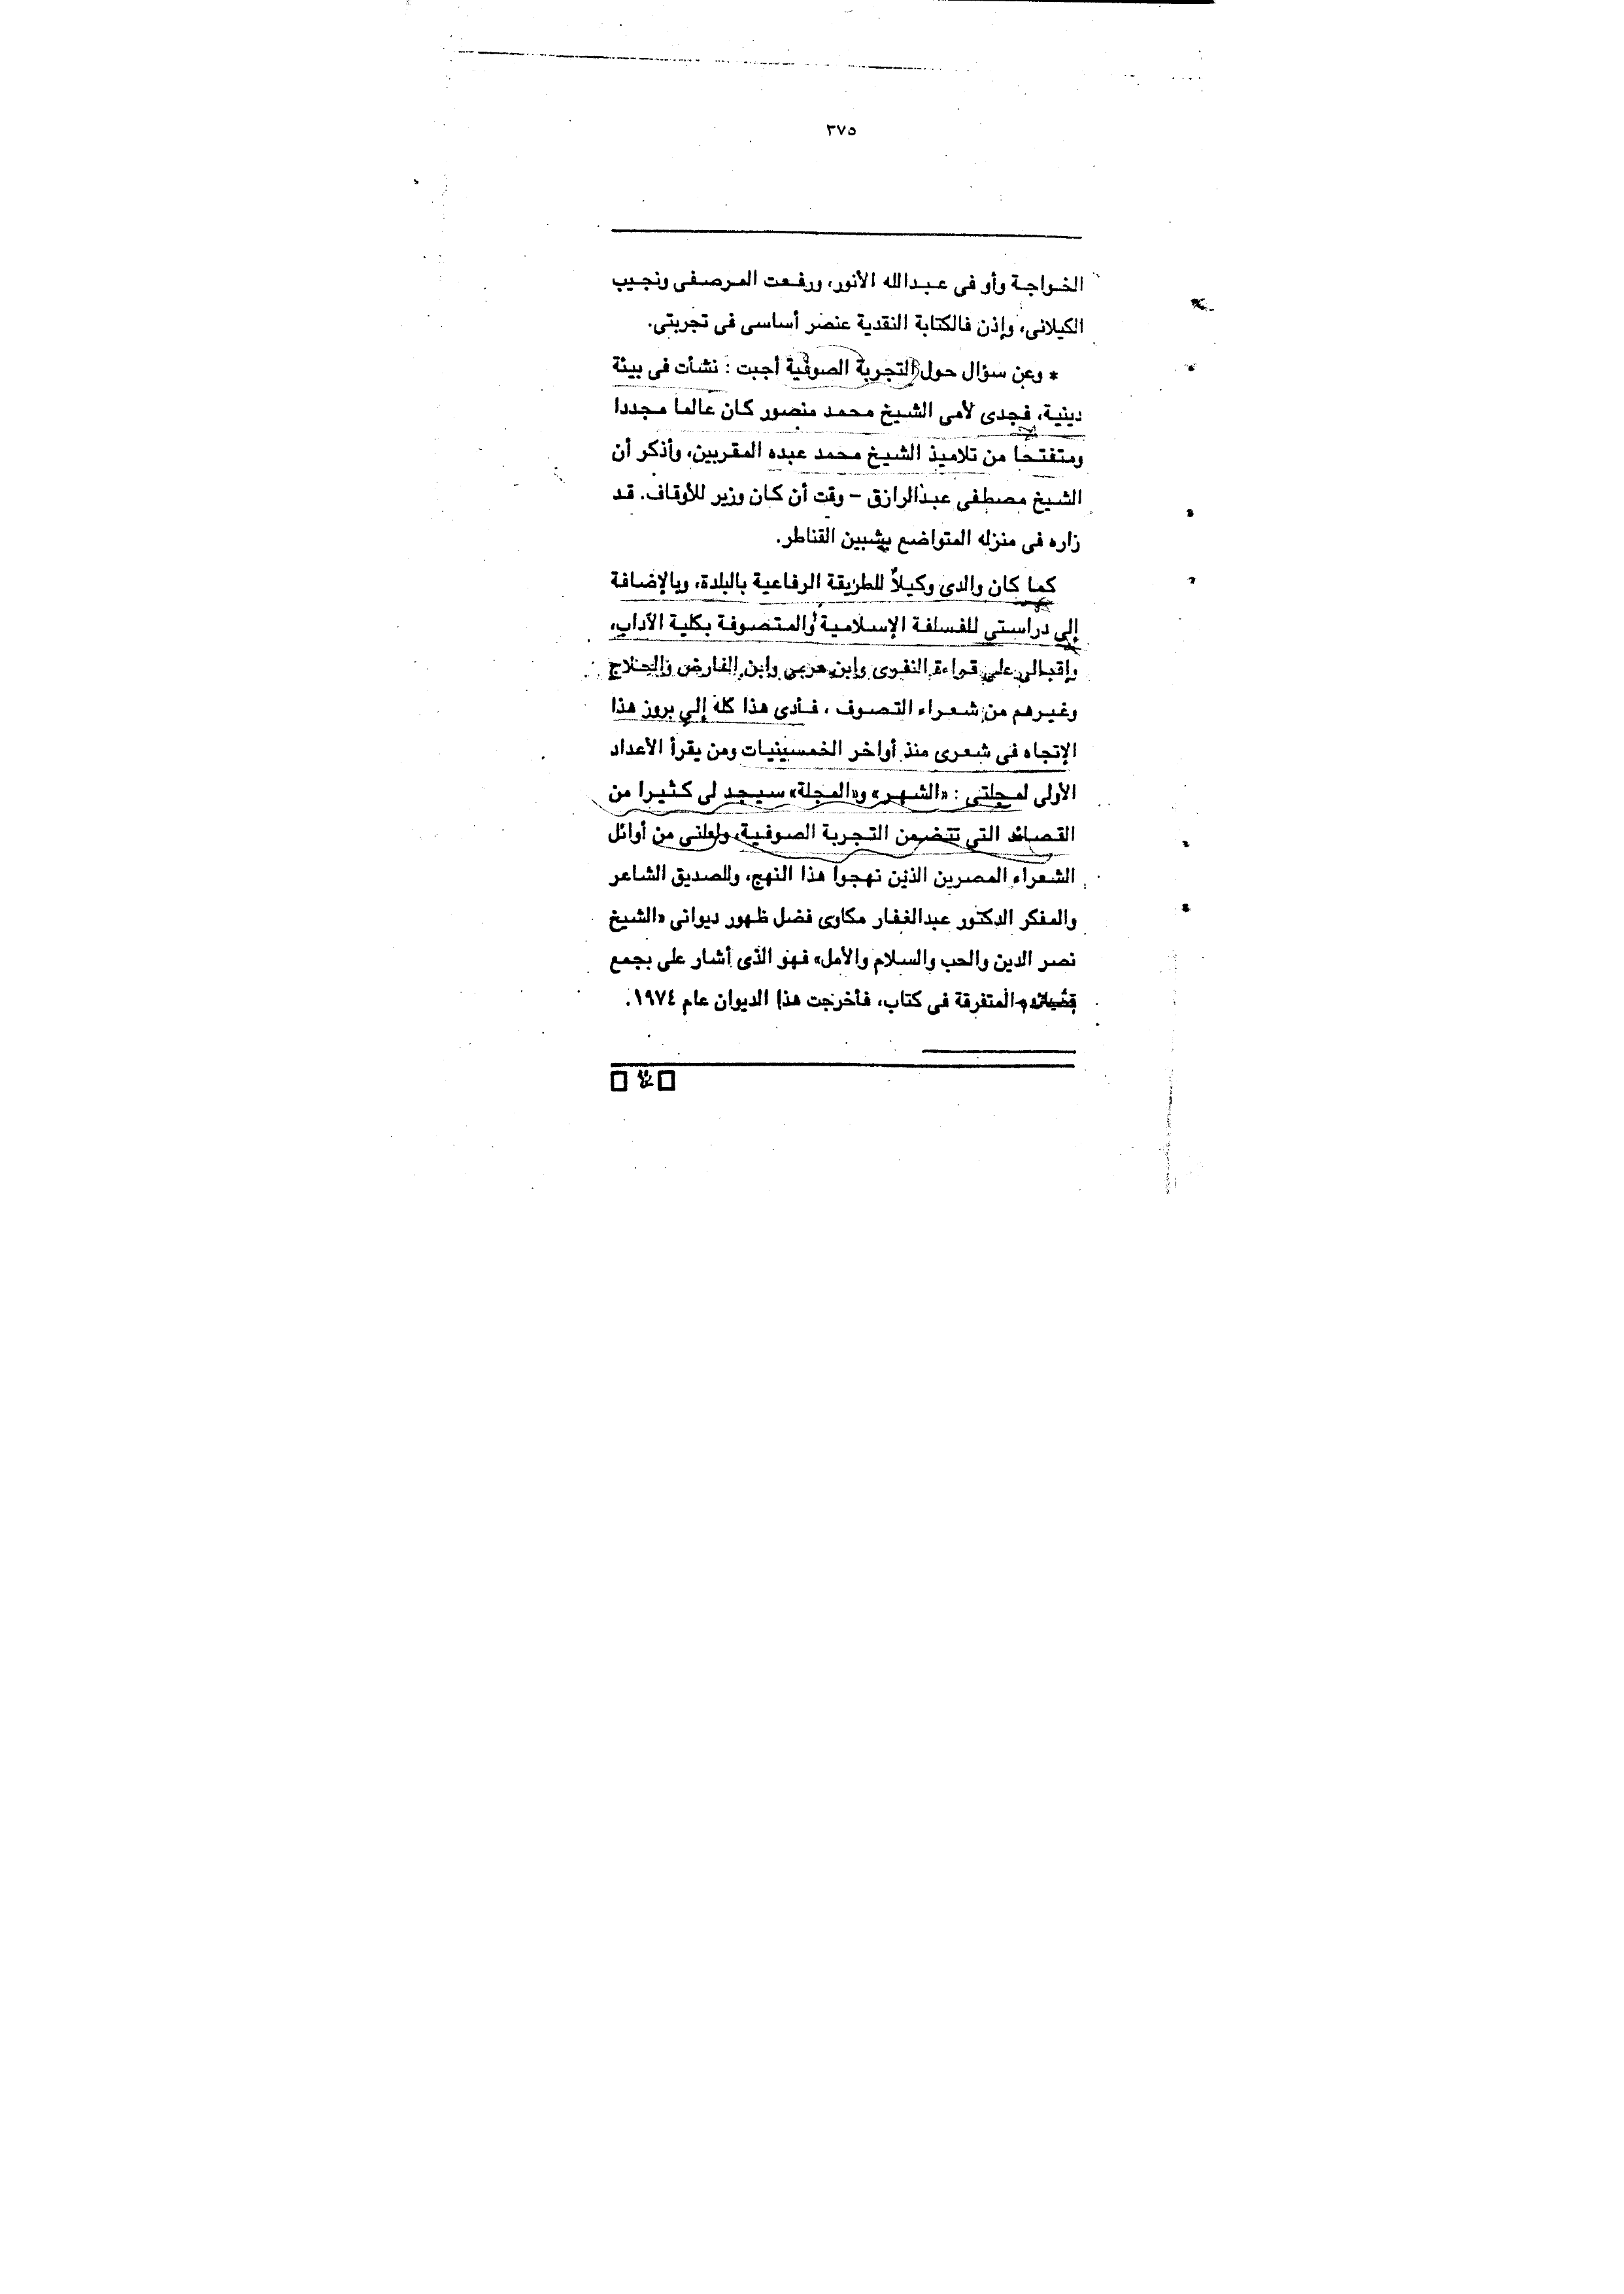 ٣٧٥
الخواجة وأو فى عبدالله الأنور، ورفعت المرصفى ونجيب
الكيلانى، وإذن فالكتابة النقدية عنصر أساسى فى تجربتى.
* وعن سؤال حول التجربة الصوفية أجبت : نشأت فى بيئة
دينية، فجدى لأمى الشيخ محمد منصور كان عالما مجددا
ومتفتحا من تلاميذ الشيخ محمد عبده المقربين، وأذكر أن
الشيخ مصطفى عبدالرازق – وقت أن كان وزير للأوقاف. قد
زاره فى منزله المتواضع بشبين القناطر.
كما كان والدى وكيلاً للطريقة الرفاعية بالبلدة، وبالإضافة
إلى دراستى للفسلفة الإسلامية والمتصوفة بكلية الآداب،
وإقبالى على قراءة النفرى وابن عربى وابن الفارض والحلاج
وغيرهم من شعراء التصوف ، فأدى هذا كله إلى بروز هذا
الإتجاه فى شعرى منذ أواخر الخمسينيات ومن يقرأ الأعداد
الأولى لمجلتى : «الشهر» و«المجلة» سيجد لى كثيرا من
القصائد التى تتضمن التجربة الصوفية، ولعلنى من أوائل
الشعراء المصرين الذين نهجوا هذا النهج، وللصديق الشاعر
والمفكر الدكتور عبدالغفار مكاوى فضل ظهور ديوانى «الشيخ
نصر الدين والحب والسلام والأمل» فهو الذى أشار على بجمع
قصائده المتفرقة فى كتاب، فأخرجت هذا الديوان عام ١٩٧٤.